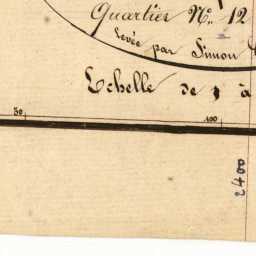 Quartier N.° 12
levée par Simon
Echelle de 1 à
50 100
2400